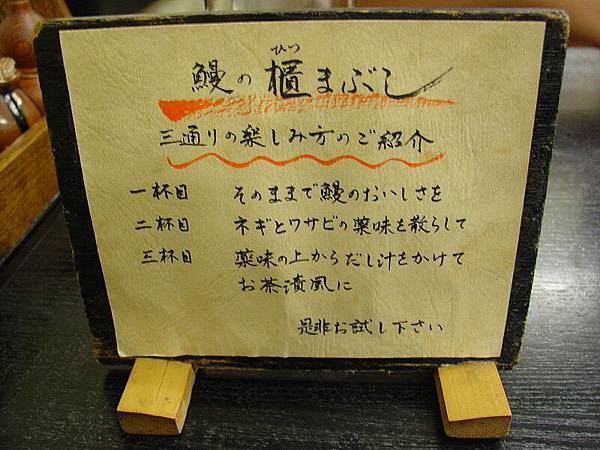 ひつ
鰻の櫃まぶし
三通りの楽しみ方のご紹介
一杯目 そのままで鰻のおいしさを
二杯目 ネギとワサビの薬味を散らして
三杯目 薬味の上からだし汁をかけて
お茶漬風に
是非お試し下さい